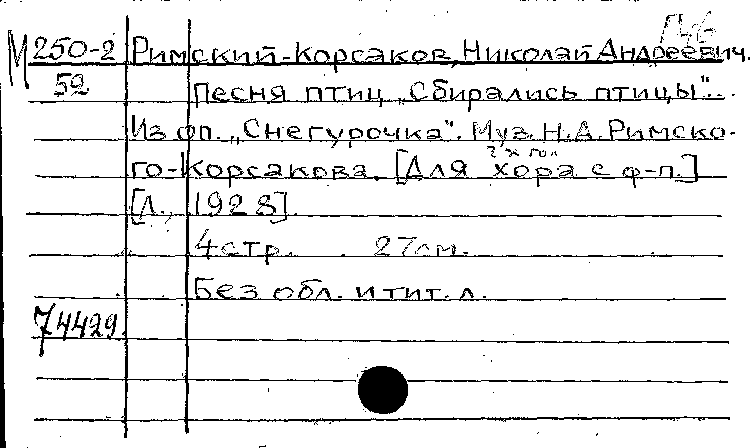 М 250-2 Римский-Корсаков, Николай Андреевич.
52 Песня птиц „Сбирались птицы"...
Из оп. „Снегурочка". Муз. Н.А. Римско-
2х гол
го-Корсакова. [Для хора с ф-п.]
[Л., 1928].
4 стр. 27 см.
Без обл. и тит. л.
74429.